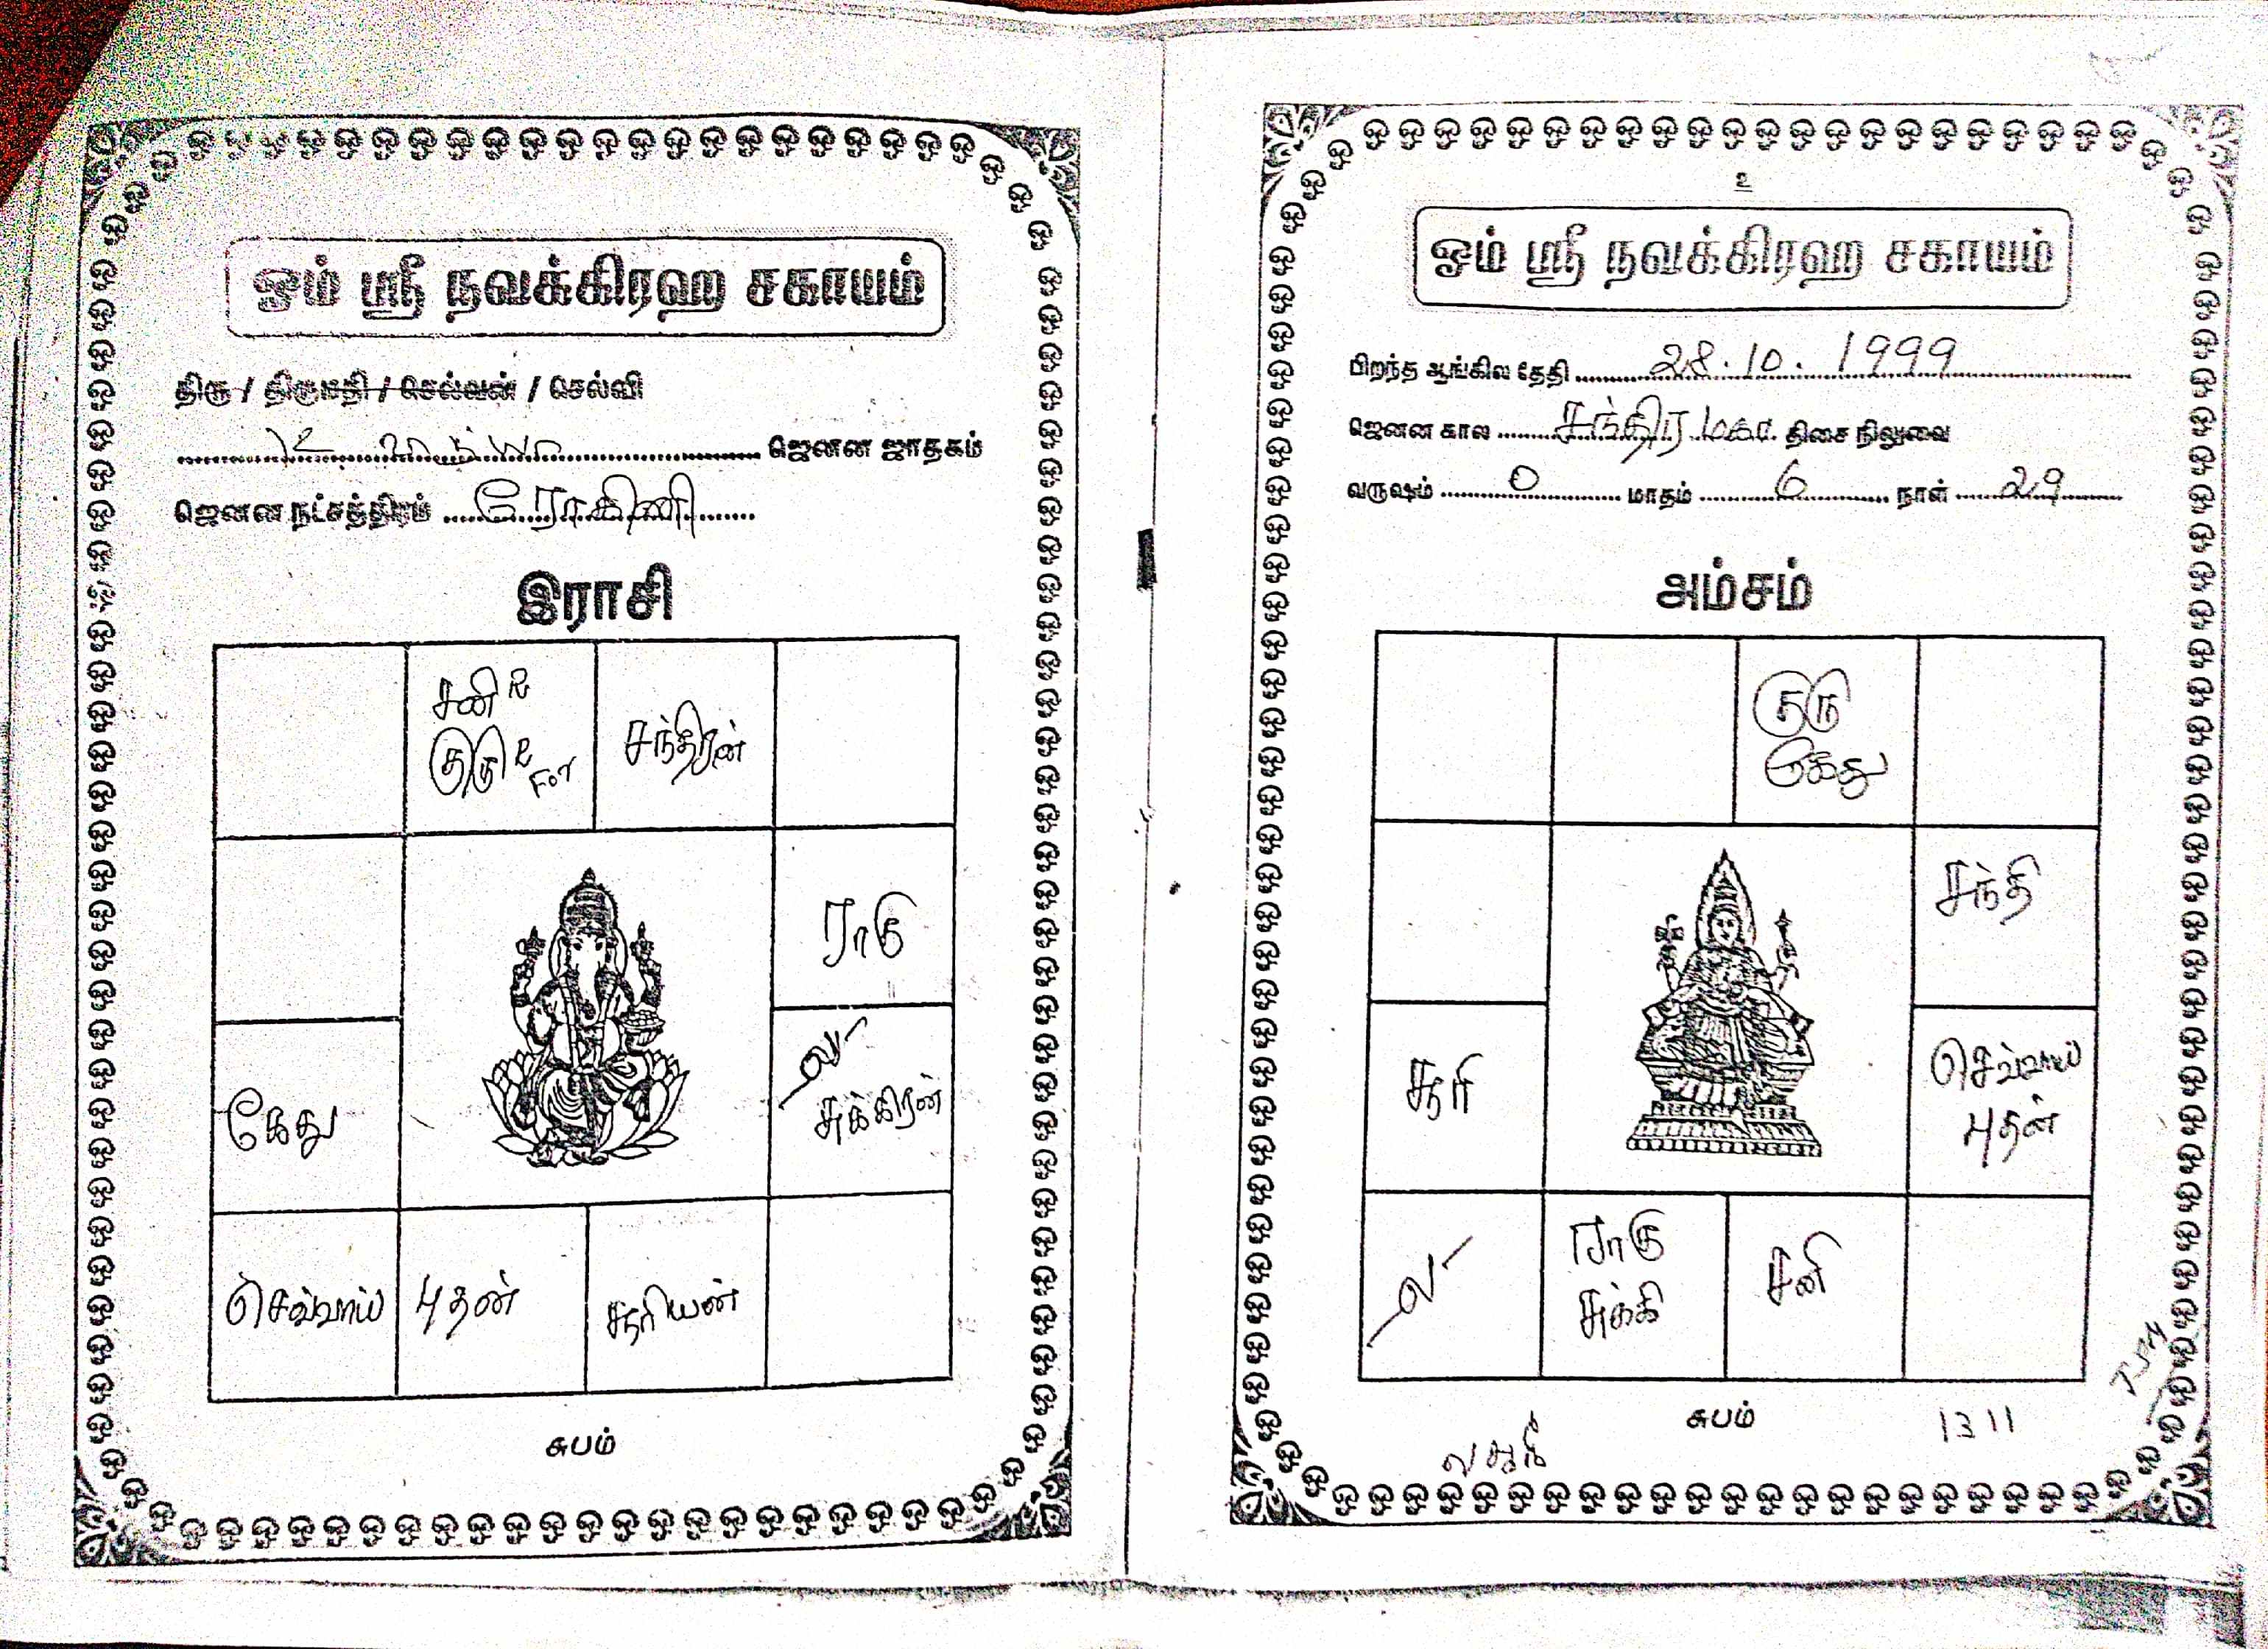 ஓம் ஸ்ரீ நவக்கிரஹ சகாயம்
திரு / திருமதி / செல்வன் / செல்வி
ஜெனன ஜாதகம்
ஜெனன நட்சத்திரம் ரோகிணி
இராசி
சனி R
குரு R
சந்திரன்
ராகு
ல
சுக்கிரன்
கேது
செவ்வாய்
புதன்
சூரியன்
சுபம்
உ
ஓம் ஸ்ரீ நவக்கிரஹ சகாயம்
பிறந்த ஆங்கில தேதி 28.10.1999
ஜெனன கால சந்திர மகா திசை நிலுவை
வருஷம் 0 மாதம் 6 நாள் 29
அம்சம்
குரு
கேது
சந்தி
சூரி
செவ்வாய்
புதன்
ல
ராகு
சுக்கி
சனி
சுபம்
1311